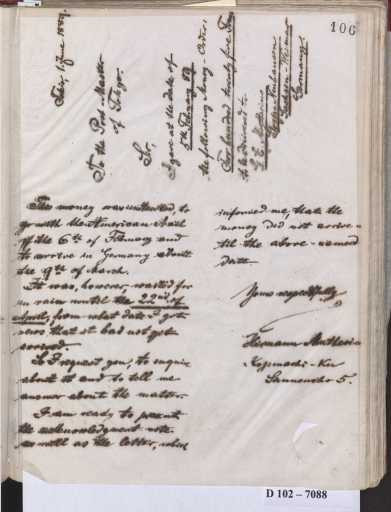 106
Tokyo, 1. June 1889.
To the Post-Master
of Tokyo.
Sir,
I gave at the date of
5th February 89
the following Money-Order:
Two hundred twenty five
to be delivered to
Sachsen-Weimar
Germany.
This money was intended, to
go with the American Mail
of the 6th of February and
to arrive in Germany about
the 9th of March.
It was, however, waited for
in vain until the 22nd of
April, from what date I got
news that it had not yet
arrived.
So I request you, to enquire
about it and to tell me
answer about the matter.
I am ready to present
the acknowledgment note
as well as the letter, which
informed me, that the
money did not arrive
til the above-named
date.
Yours respectfully
Kojimachi-Ku
5.
D 102 – 7088